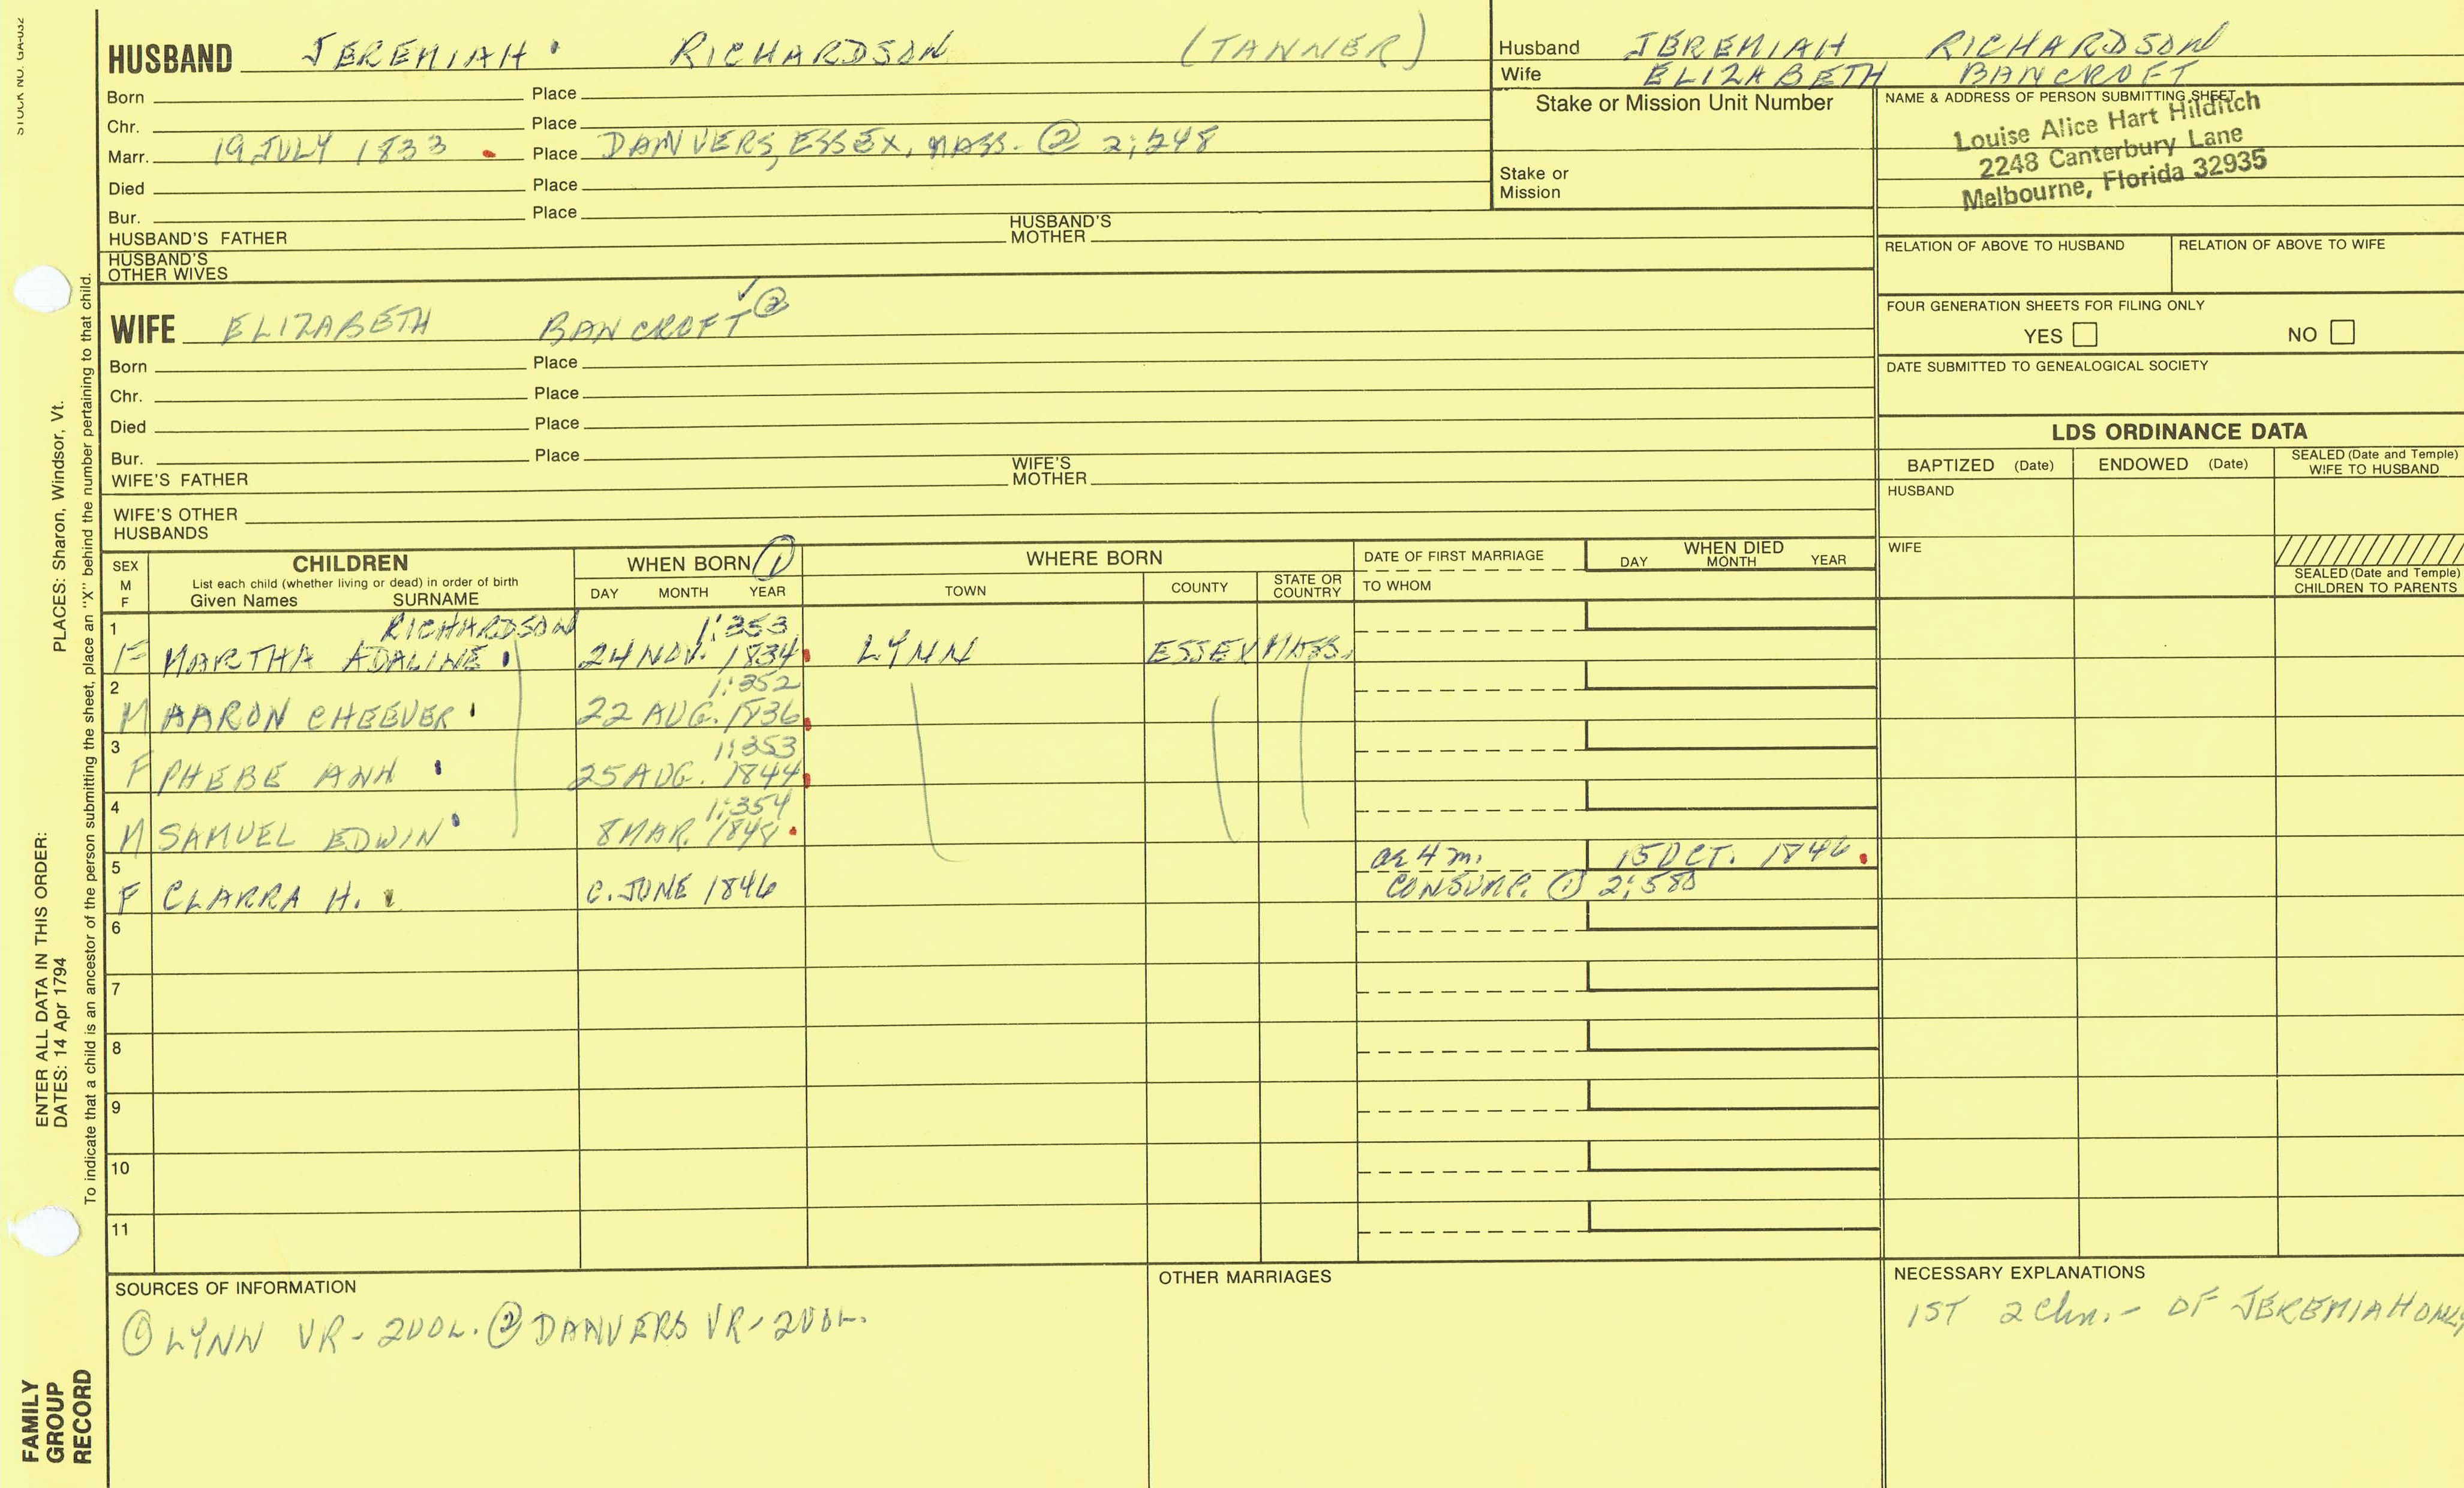 STOCK NO. GA-032
HUSBAND JEREMIAH RICHARDSON (TANNER)
Born Place
Chr. Place
Marr. 19 JULY 1833 Place DANVERS, ESSEX, MASS. ② 2:248
Died Place
Bur. Place
HUSBAND'S FATHER HUSBAND'S MOTHER
HUSBAND'S OTHER WIVES
WIFE ELIZABETH BANCROFT ②
Born Place
Chr. Place
Died Place
Bur. Place
WIFE'S FATHER WIFE'S MOTHER
WIFE'S OTHER HUSBANDS
Husband JEREMIAH RICHARDSON
Wife ELIZABETH BANCROFT
Stake or Mission Unit Number
Stake or Mission
NAME & ADDRESS OF PERSON SUBMITTING SHEET
Louise Alice Hart Hilditch
2248 Canterbury Lane
Melbourne, Florida 32935
RELATION OF ABOVE TO HUSBAND RELATION OF ABOVE TO WIFE
FOUR GENERATION SHEETS FOR FILING ONLY
YES NO
DATE SUBMITTED TO GENEALOGICAL SOCIETY
LDS ORDINANCE DATA
BAPTIZED (Date) ENDOWED (Date) SEALED (Date and Temple) WIFE TO HUSBAND
HUSBAND
WIFE
SEALED (Date and Temple) CHILDREN TO PARENTS
SEX M F
CHILDREN
List each child (whether living or dead) in order of birth
Given Names SURNAME
WHEN BORN ①
DAY MONTH YEAR
WHERE BORN
TOWN COUNTY STATE OR COUNTRY
DATE OF FIRST MARRIAGE
TO WHOM
WHEN DIED
DAY MONTH YEAR
1 RICHARDSON 1:353
F MARTHA ADALINE 24 NOV. 1834 LYNN ESSEX MASS.
2 1:352
M AARON CHEEVER 22 AUG. 1836
3 1:353
F PHEBE ANN 25 AUG. 1844
4 1:354
M SAMUEL EDWIN 8 MAR. 1848
5 ae 4 m. 15 OCT. 1846
F CLARRA H. C. JUNE 1846 CONSUMP. ① 2:580
6
7
8
9
10
11
SOURCES OF INFORMATION
① LYNN VR - 2VOL. ② DANVERS VR - 2VOL.
OTHER MARRIAGES
NECESSARY EXPLANATIONS
1ST 2 Chn. - OF JEREMIAH ONLY
PLACES: Sharon, Windsor, Vt.
ENTER ALL DATA IN THIS ORDER:
DATES: 14 Apr 1794
To indicate that a child is an ancestor of the person submitting the sheet, place an "X" behind the number pertaining to that child.
FAMILY
GROUP
RECORD